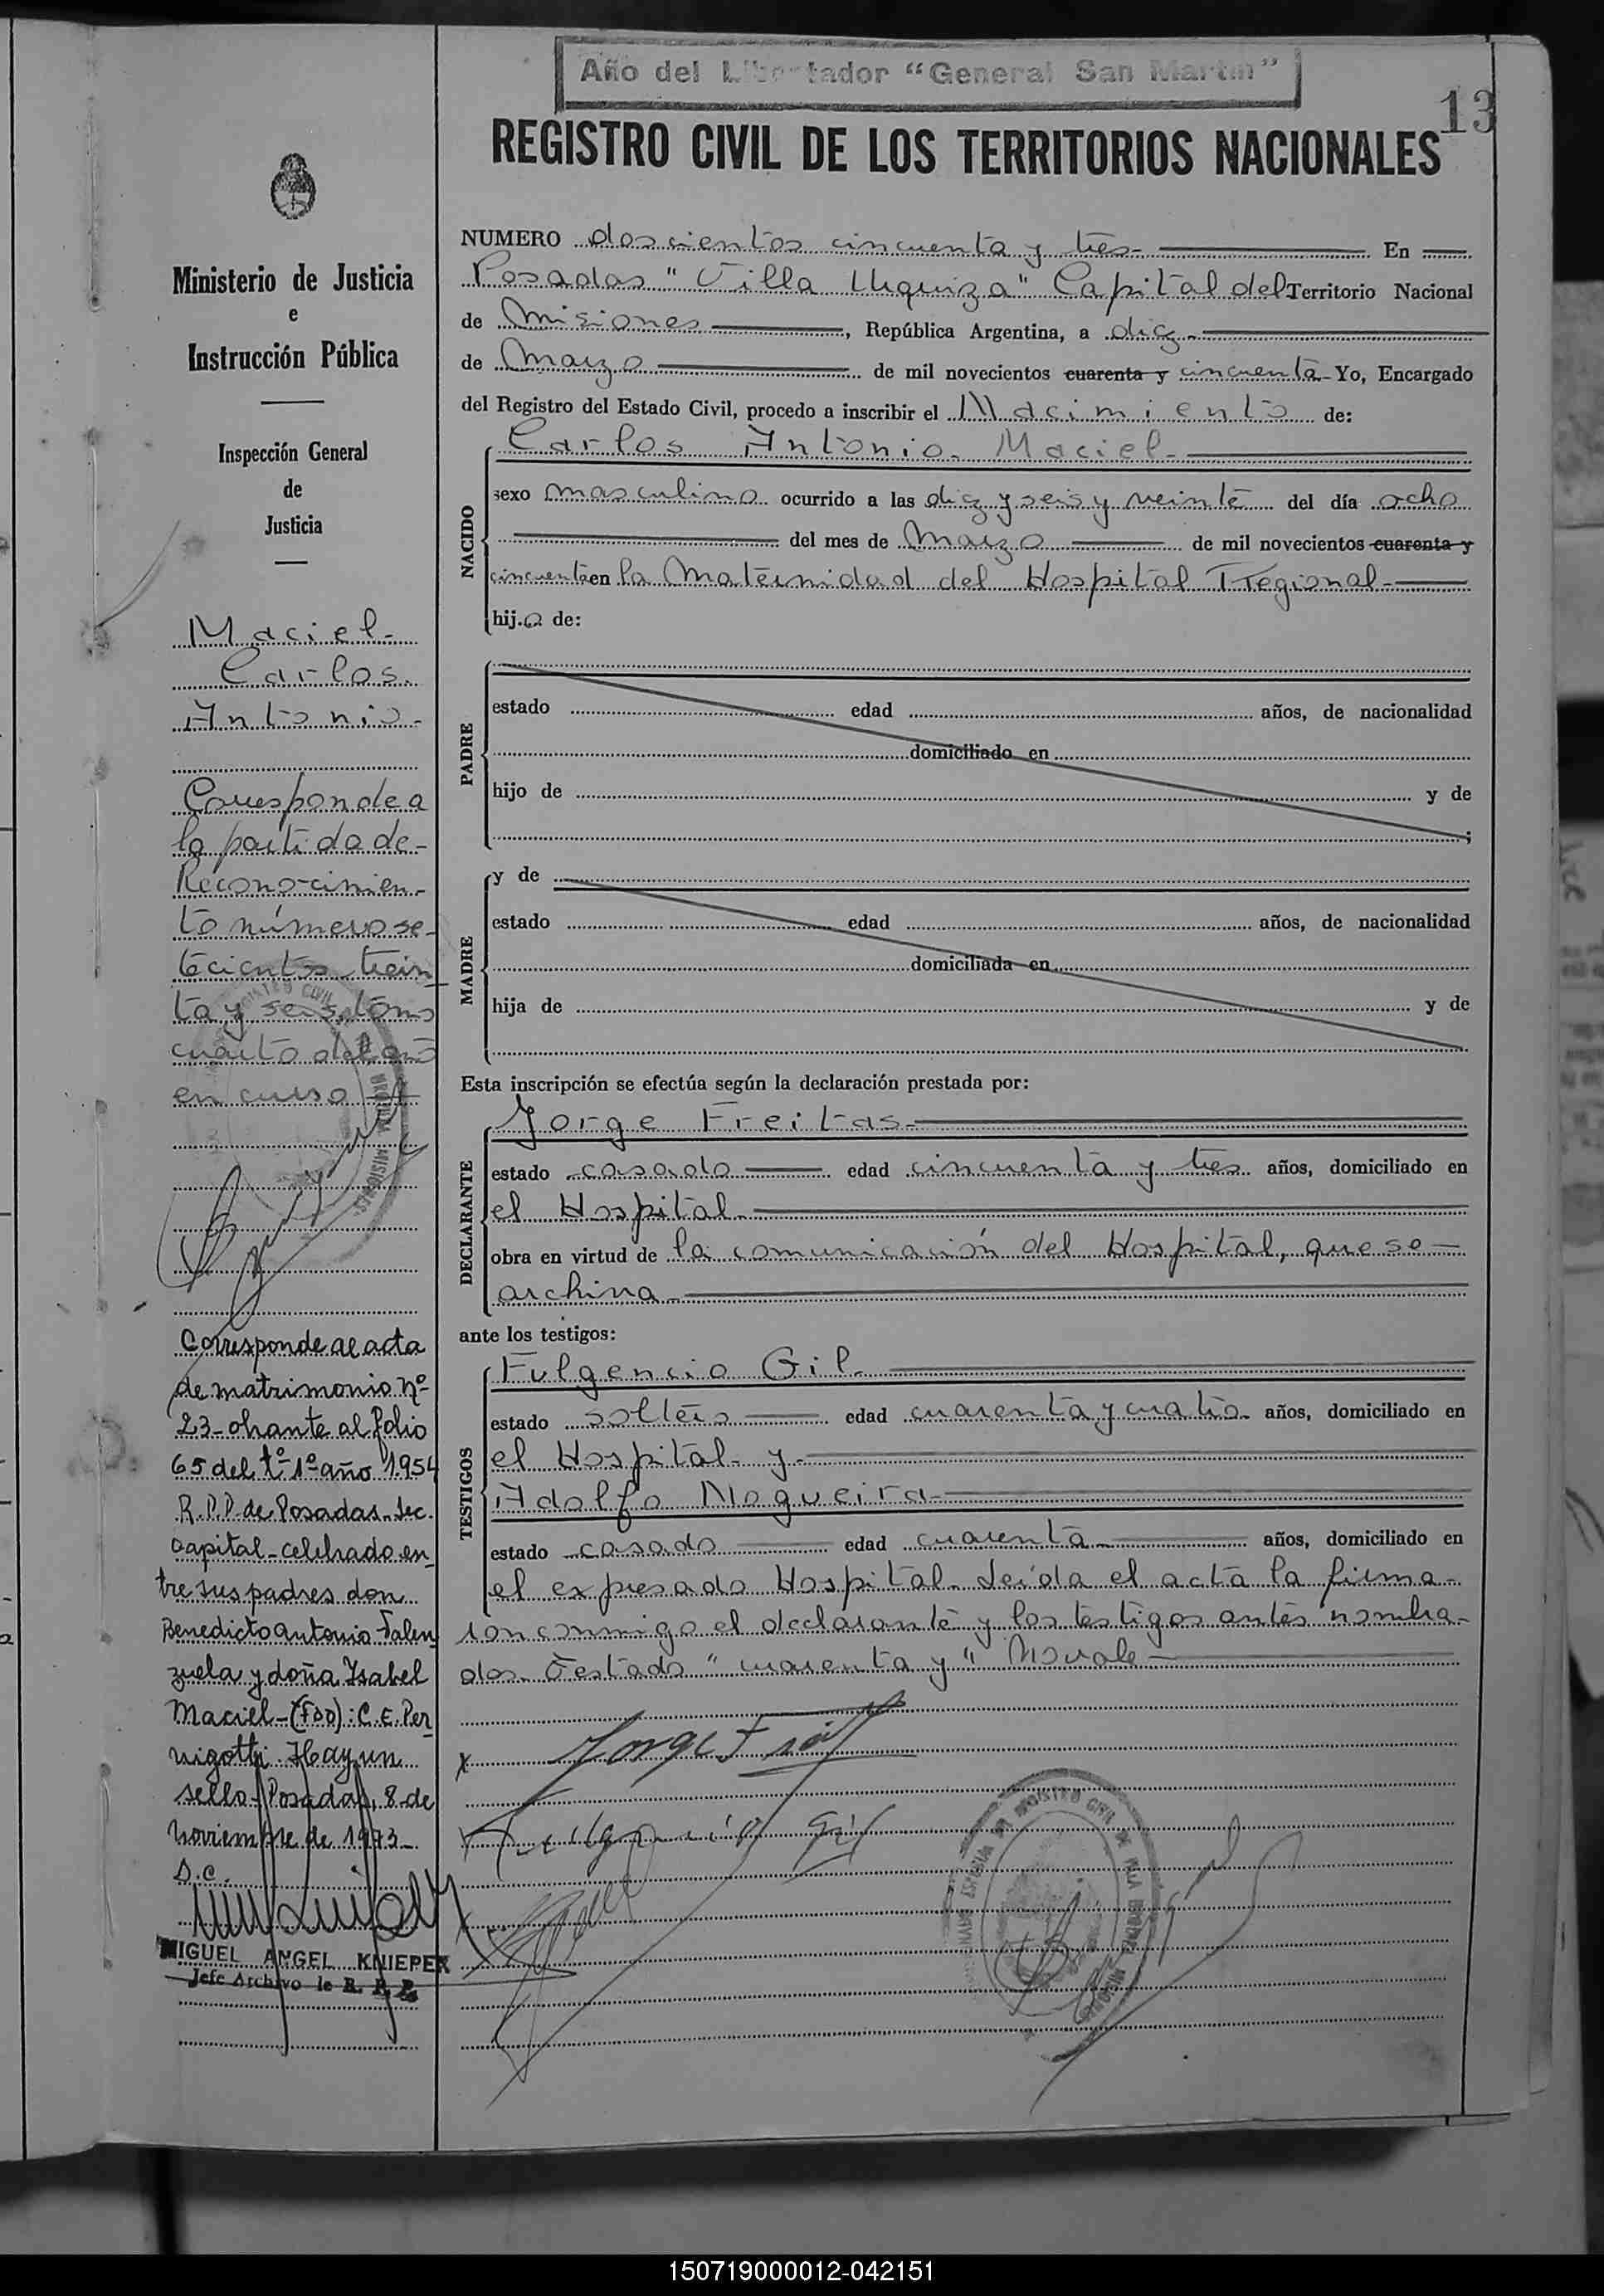 Año del Libertador "General San Martín"
13
REGISTRO CIVIL DE LOS TERRITORIOS NACIONALES
Ministerio de Justicia
e
Instrucción Pública
Inspección General
de
Justicia
Maciel-
Carlos.
Antonio-
Corresponde a
la partida de-
Reconocimien-
to número se-
tecientos trein
ta y seis, tomo
cuarto del año
en curso
Corresponde al acta
de matrimonio nº
23- obrante al folio
65 del tº 1º año 1954
R.P.P. de Posadas. Sec.
Capital- celebrado en
tre sus padres don
Benedicto Antonio Valen
zuela y doña Isabel
Maciel-(Fdo): C.E. Per
nigotti. Hay un
sello- Posadas, 8 de
Noviembre de 1973-
D.C.
MIGUEL ANGEL KNIEPER
Jefe Archivo de R. P. P.
NUMERO doscientos cincuenta y tres- En
Posadas "Villa Urquiza" Capital del Territorio Nacional
de Misiones, República Argentina, a diez-
de Marzo de mil novecientos cuarenta y cincuenta- Yo, Encargado
del Registro del Estado Civil, procedo a inscribir el Nacimiento de:
NACIDO
Carlos Antonio- Maciel-
sexo masculino ocurrido a las diez y seis y veinte del día ocho
del mes de Marzo de mil novecientos cuarenta y
cincuenta en la Maternidad del Hospital Regional-
hij.o de:
PADRE
estado edad años, de nacionalidad
domiciliado en
hijo de y de
;
MADRE
y de
estado edad años, de nacionalidad
domiciliada en
hija de y de
Esta inscripción se efectúa según la declaración prestada por:
DECLARANTE
Jorge Freitas-
estado casado edad cincuenta y tres años, domiciliado en
el Hospital-
obra en virtud de la comunicación del Hospital, que se
archiva-
ante los testigos:
TESTIGOS
Fulgencio Gil-
estado soltero edad cuarenta y cuatro- años, domiciliado en
el Hospital- y-
Adolfo Nogueira-
estado casado edad cuarenta- años, domiciliado en
el expresado Hospital- Leída el acta la firma-
ron conmigo el declarante y los testigos antes nombra-
dos- Testado "cuarenta y" No vale-
x Jorge Freit
Fulgencio Gil
150719000012-042151